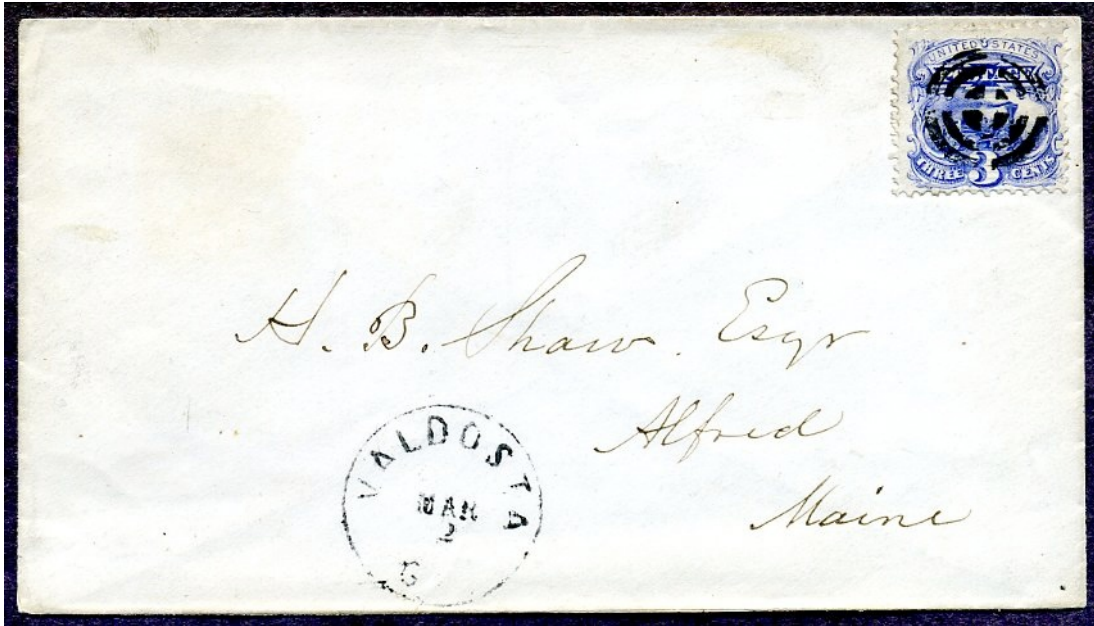 UNITED STATES
THREE 3 CENTS
H. B. Shaw. Esqr
Alfred
Maine
VALDOSTA
MAR
2
G